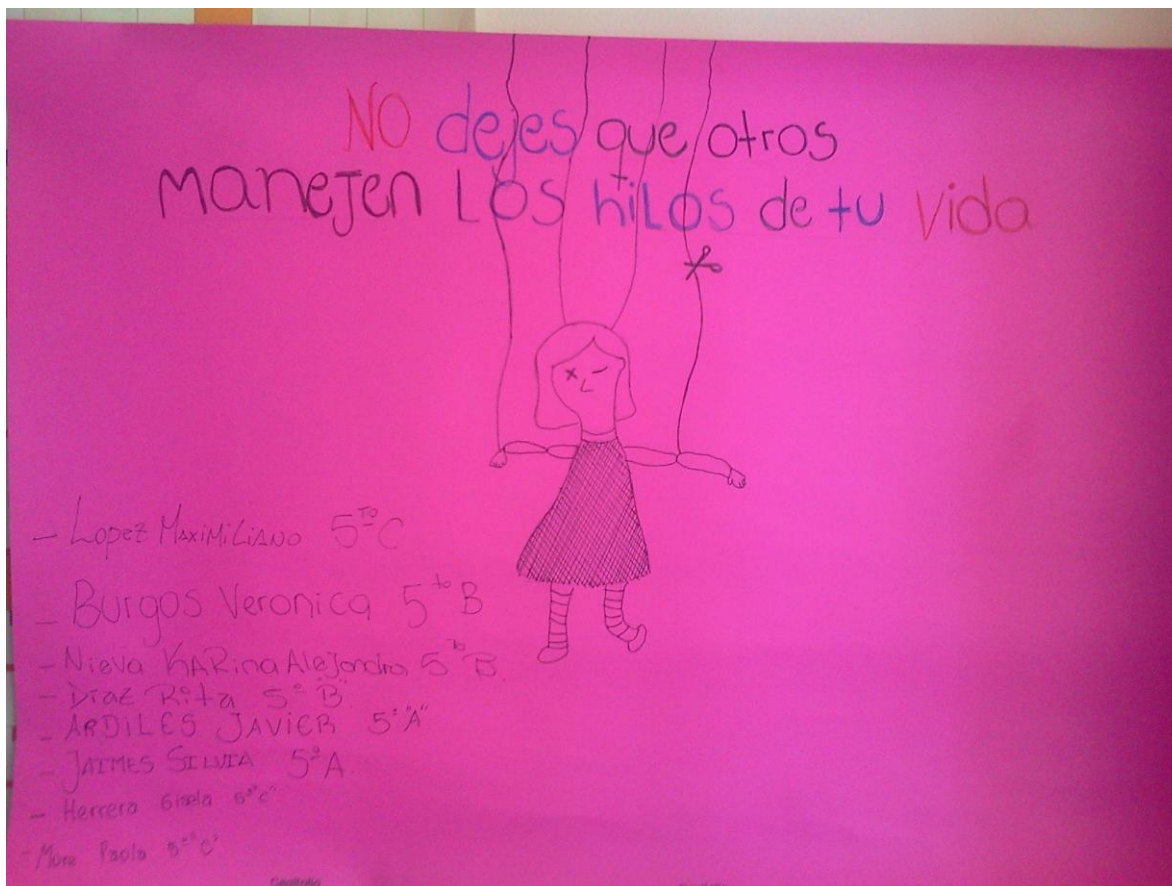 NO dejes que otros
manejen Los hiLos de tu vida
- Lopez MaxiMiLiANO 5TO C
- Burgos Veronica 5to B
- Nieva KARina Alejandra 5to B
- Diaz Rita 5º "B"
- ARDILES JAVIER 5º "A"
- JAIMES SILVIA 5º A
- Herrera Gisela 5º "C"
- More Paola 5º "C"